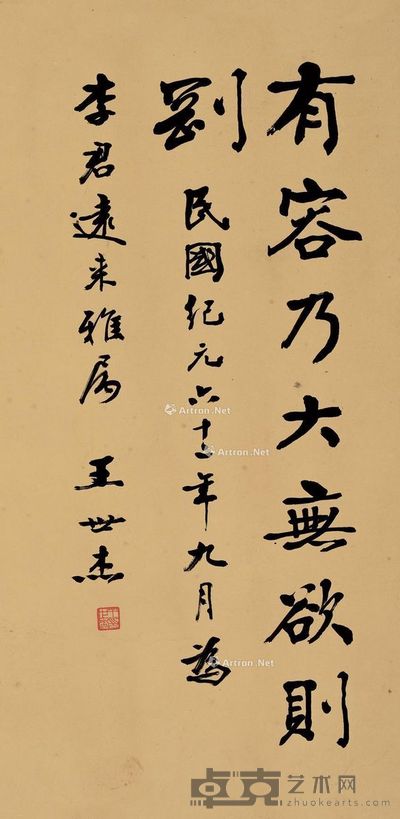 有容乃大無欲則
剛 民國紀元六十年九月為
李君遠来雅属 王世杰
Artron.Net
Artron.Net
Artron.Net
Artron.Net
卓克艺术网
zhuokearts.com